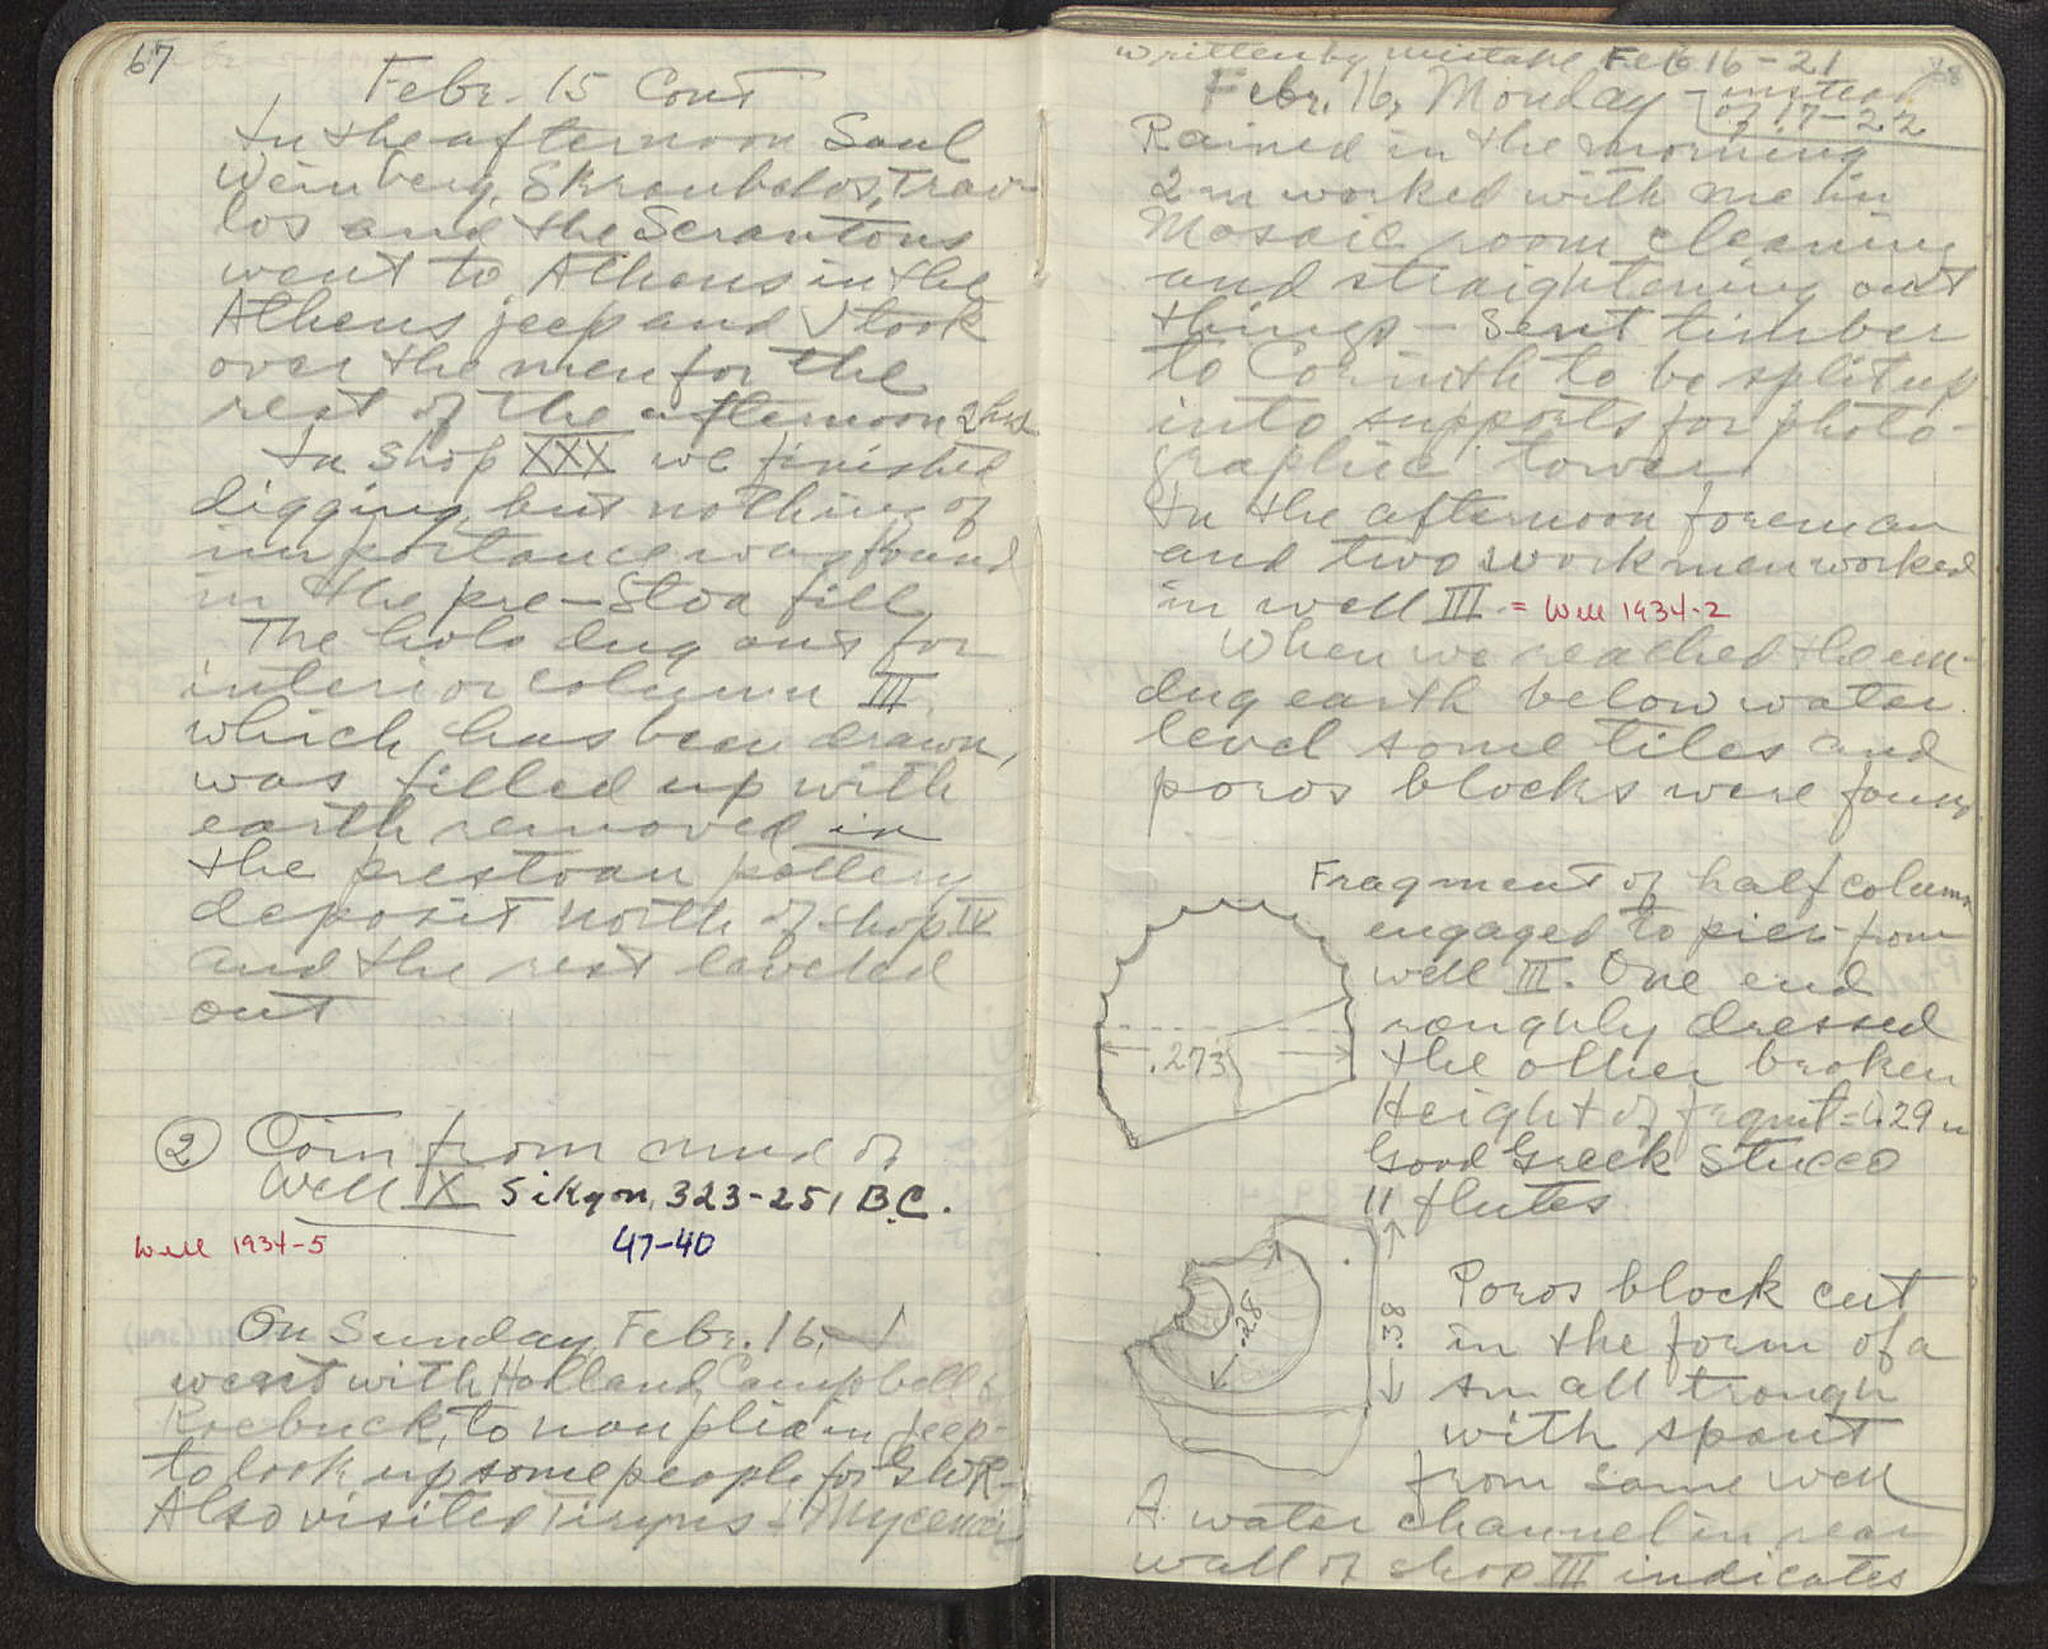 67
Febr. 15 Cont
In the afternoon Saul
Weinberg, Skroubolos, Trav-
los and the Scrantons
went to Athens in the
Athens jeep and I took
over the men for the
rest of the afternoon 2 hrs
In shop XXX we finished
digging but nothing of
importance was found
in the pre-Stoa fill
The hole dug out for
interior column III
which has been drawn,
was filled up with
earth removed in
the prestoan pottery
deposit north of shop IV
and the rest leveled
out
2 Coin from mud of
Well X Sikyon, 323-251 B.C.
Well 1934-5 47-40
On Sunday, Febr. 16, I
went with Holland, Campbell &
Roebuck, to nauplia in jeep-
to look up some people for
Also visited Tiryns & Mycenae
written by mistake Feb 16-21
instead
of 17-22
68
Febr. 16, Monday
Rained in the morning
2 m worked with me in
Mosaic room cleaning
and straightening out
things - Sent timber
to Corinth to be split up
into supports for photo-
graphic tower
In the afternoon foreman
and two workmen worked
in well III. = Well 1934-2
When we reached the un-
dug earth below water
level some tiles and
poros blocks were found
Fragment of half column
engaged to pier from
well III. One end
roughly dressed
the other broken
Height of fragmt = 0.29 m
Good Greek Stucco
11 flutes
.273
Poros block cut
in the form of a
small trough
with spout
from same well
.28
.38
A water channel in rear
wall of shop III indicates